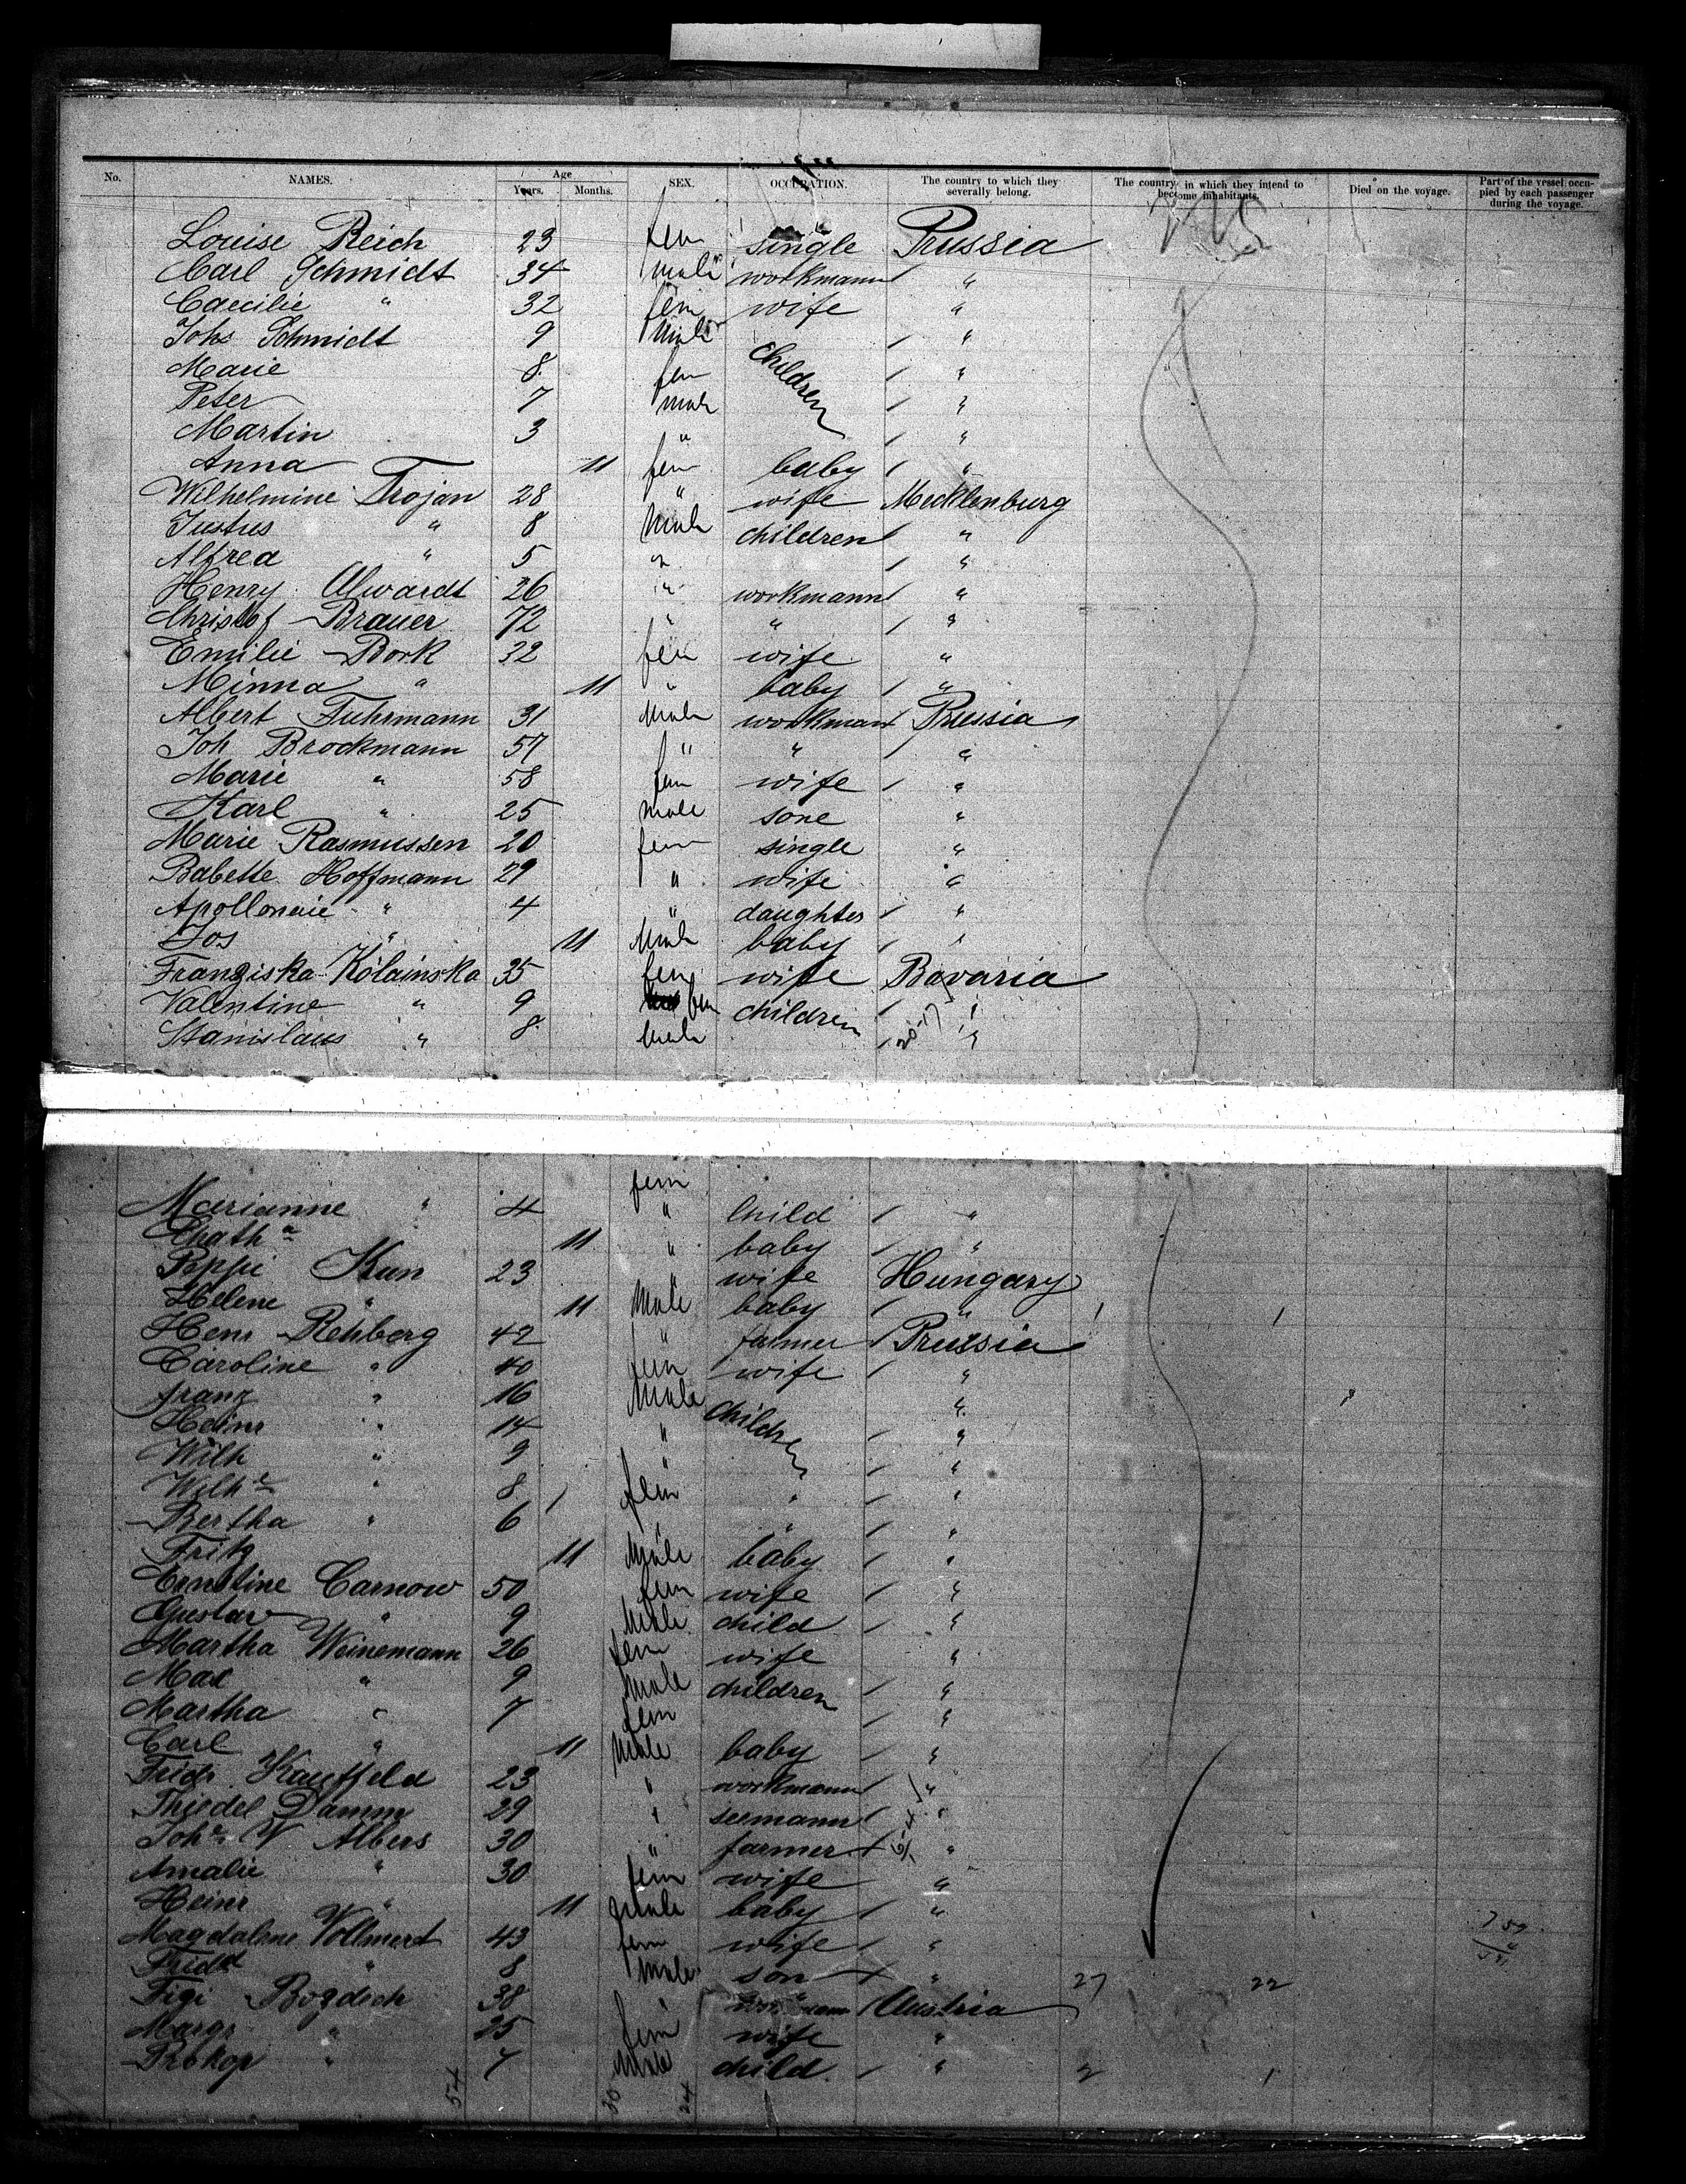 No. NAMES. Age Years. Months. SEX. OCCUPATION. The country to which they severally belong. The country in which they intend to become inhabitants. Died on the voyage. Part of the vessel occupied by each passenger during the voyage.
Louise Reich 23 fem single Prussia
Carl Schmidt 34 male workmann "
Caecilie " 32 fem wife "
Johs Schmidt 9 male "
Marie 8 fem children "
Peter 7 male "
Martin 3 " "
Anna 11 fem baby "
Wilhelmine Trojan 28 " wife Mecklenburg
Justus " 8 male children "
Alfred " 5 " "
Henry Alwardt 26 " workmann "
Christof Brauer 72 " " "
Emilie Bork 32 fem wife "
Minna " 11 " baby "
Albert Fuhrmann 31 male workman Prussia
Joh Brockmann 57 " " "
Marie " 58 fem wife "
Karl " 25 male sone "
Marie Rasmussen 20 fem single "
Babette Hoffmann 29 " wife "
Apollonaie " 4 " daughter "
Jos " 11 male baby "
Franziska Kolainska 35 fem wife Bavaria
Valentine " 9 fem children "
Stanislaus " 8 male "
fem
Marianne " 4 " child "
Chath 11 " baby "
Peppi Kun 23 " wife Hungary
Helene " 11 male baby "
Henr Rehberg 42 " farmer Prussia
Caroline " 40 fem wife "
franz " 16 male children "
Heinr " 14 " "
Wilh " 9 " "
Wilhe " 8 fem " "
Bertha " 6 " " "
Fritz 11 male baby "
Ernstine Carnow 50 fem wife "
Gustav " 9 male child "
Martha Weinemann 26 fem wife "
Max " 9 male children "
Martha " 7 fem "
Carl " 11 male baby "
Fridr Kauffeld 23 " workmann "
Thiedel Damm 29 " seemann "
Joh W Albers 30 " farmer "
Amalie " 30 fem wife "
Heinr " 11 male baby "
Magdalene Vollmert 43 fem wife "
Fridd " 8 male son " 27 22
Figi Bozdech 38 " Austria
Margr " 25 fem wife "
Prokop " 7 male child " 2 1
54 30 24